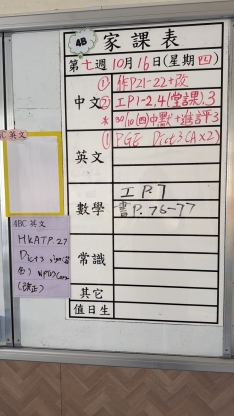 4B 家課表
第七週10月16日(星期四)
中文
① 作P21-22+改
② 工P1-2,4(堂課),3
※ 30/10(四)中默+進評3
英文
① PGE Dict 3 (A×2)
數學
工P.7
書P.76-77
常識
其它
值日生
英文
4BC 英文
HKATP.27
Dict 3 sign
(改正)